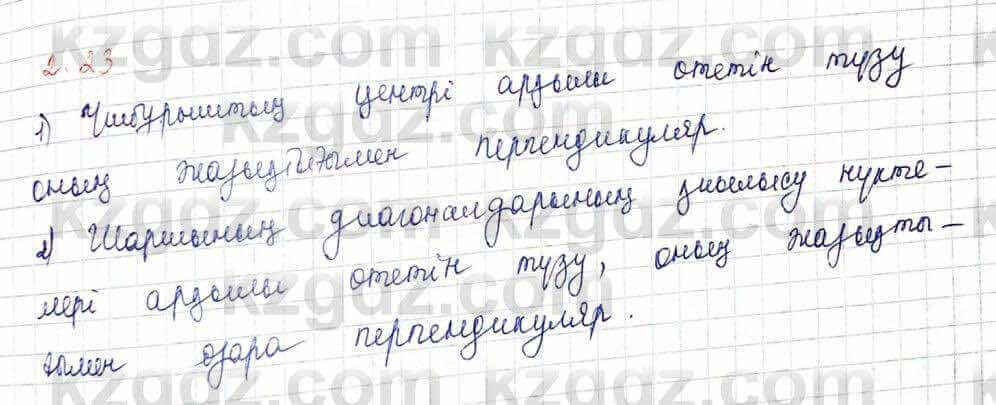 2.23
1) Үшбұрыштың центрі арқылы өтетін түзу
оның жазықтығымен перпендикуляр.
2) Шаршының диагоналдарының қиылысу нүкте-
лері арқылы өтетін түзу, оның жазықты-
ғымен өзара перпендикуляр.
kzgdz.com